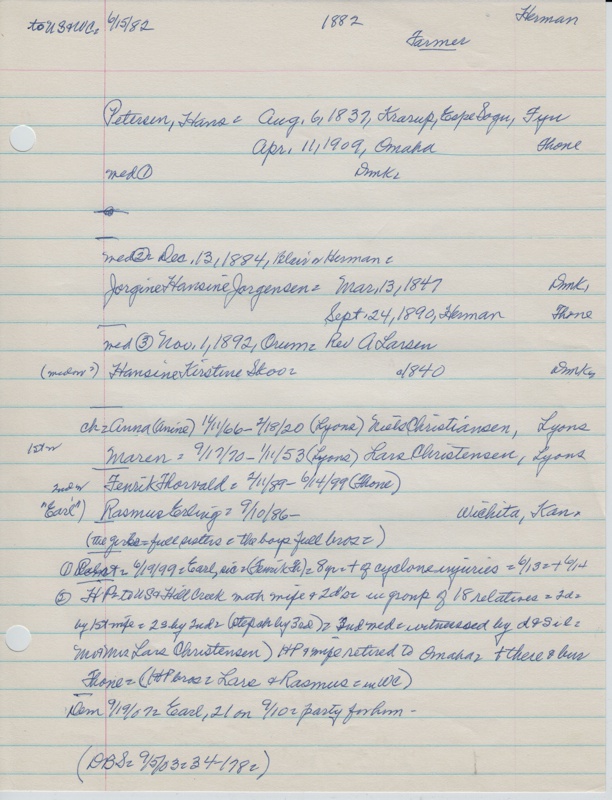 to US & WC = 6/15/82 1882 Herman
Farmer
Petersen, Hans = Aug. 6, 1837, Krarup, Espe Sogn, Fyn
Apr. 11, 1909, Omaha Thone
med ① Dmk =
med ② = Dec. 13, 1884, Blair or Herman =
Jorgine Hansine Jorgensen = Mar. 13, 1847 Dmk,
Sept. 24, 1890, Herman Thone
med ③ Nov. 1, 1892, Orum = Rev A Larsen
Hansine Kirstine Skov = c/1840 Dmk
ch = Anna (Anine) 11/11/66 - 2/18/20 (Lyons) Niels Christiansen, Lyons
1st m Maren = 9/17/70 - 1/11/53 (Lyons) Lars Christensen, Lyons
2nd m Henrik Thorvald = 2/11/89 - 6/14/99 (Thone)
"Earl") Rasmus Erling = 9/10/86 - Wichita, Kan.
(the girls = full sisters = the boys full bros = )
① 6/19/99 = Earl, sic = (Henrik Th) = 8yr = + of cyclone injuries = 6/13 = + 6/14
② HP = to US & Hill Creek with wife & 2 d's = in group of 18 relatives = 2d =
by 1st wife = 2s by 2nd = (step ch by 3rd) = 2nd med = witnessed by d & sil =
Mr & Mrs Lars Christensen) HP & wife retired to Omaha = + there & bur
Thone = (HP bros = Lars & Rasmus = in WC)
Dem 9/19/07 = Earl, 21 on 9/10 = party for him -
(DBS = 9/5/03 = 34-178 = )